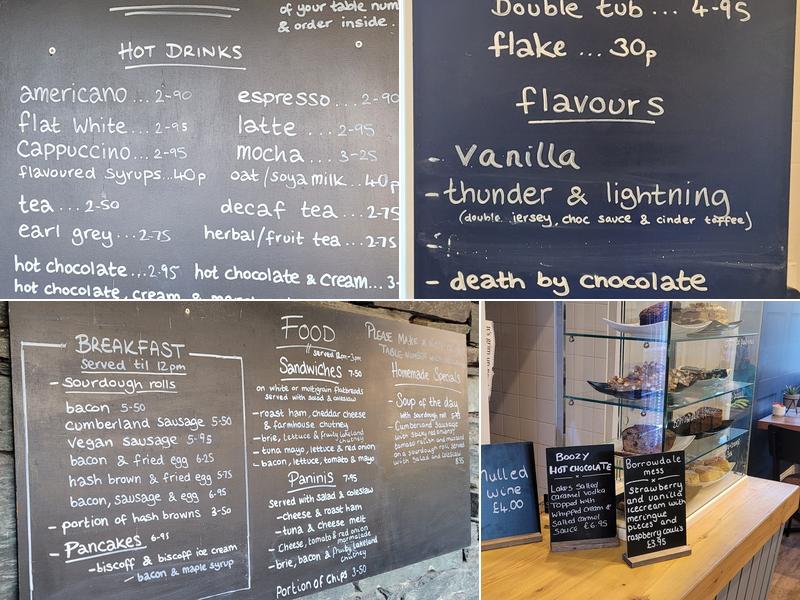 of your table num
& order inside..
HOT DRINKS
americano ... 2-90
espresso ... 2-90
flat white ... 2-95
latte ... 2-95
cappuccino ... 2-95
mocha ... 3-25
flavoured syrups...40p
oat/soya milk ... 40p
tea ... 2-50
decaf tea ... 2-75
earl grey ... 2-75
herbal/fruit tea ... 2-75
hot chocolate ... 2.95
hot chocolate & cream... 3-
hot chocolate, cream &
Double tub ... 4-95
flake ... 30p
flavours
- vanilla
- thunder & lightning
(double jersey, choc sauce & cinder toffee)
- death by chocolate
BREAKFAST
served til 12pm
- sourdough rolls
bacon 5-50
cumberland sausage 5-50
vegan sausage 5-95
bacon & fried egg 6-25
hash brown & fried egg 5-75
bacon, sausage & egg 6-95
- portion of hash browns 3-50
- Pancakes 6-95
- biscoff & biscoff ice cream
- bacon & maple syrup
FOOD
served 12pm-3pm
Sandwiches 7-50
on white or multigrain flatbreads
served with salad & coleslaw
- roast ham, cheddar cheese
& farmhouse chutney
- brie, lettuce & fruity lakeland
chutney
- tuna mayo, lettuce & red onion
- bacon, lettuce, tomato & mayo
Paninis 7-95
served with salad & coleslaw
- cheese & roast ham
- tuna & cheese melt
- cheese, tomato & red onion
marmalade
- brie, bacon & fruity lakeland
chutney
Portion of Chips 3-50
PLEASE MAKE A
TABLE NUMBER
Homemade Specials
- Soup of the day
with sourdough roll
- Cumberland sausage
with sticky red onion,
tomato relish and mustard
on a sourdough roll served
with salad and coleslaw
mulled
wine
£4.00
BOOZY
HOT CHOCOLATE
Lakes Salted
caramel vodka
Topped with
Whipped cream &
Salted carmel
sauce £6.95
Borrowdale
mess
strawberry
and vanilla
icecream with
meringue
pieces and
raspberry coulis
£3.95